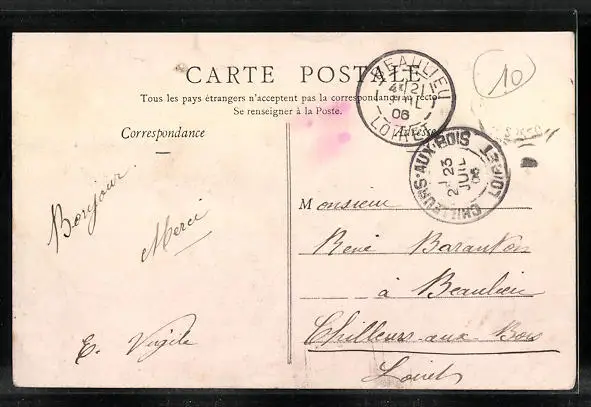 CARTE POSTALE
Tous les pays étrangers n'acceptent pas la correspondance au recto
Se renseigner à la Poste.
Correspondance
Adresse
BEAULIEU
LOIRET
06
10
CHILLEURS-AUX-BOIS
LOIRET
23
JUIL
06
Bonjour
Merci
E. Virgile
Monsieur
René
à Beaulieu
Chilleurs-aux Bois
Loiret